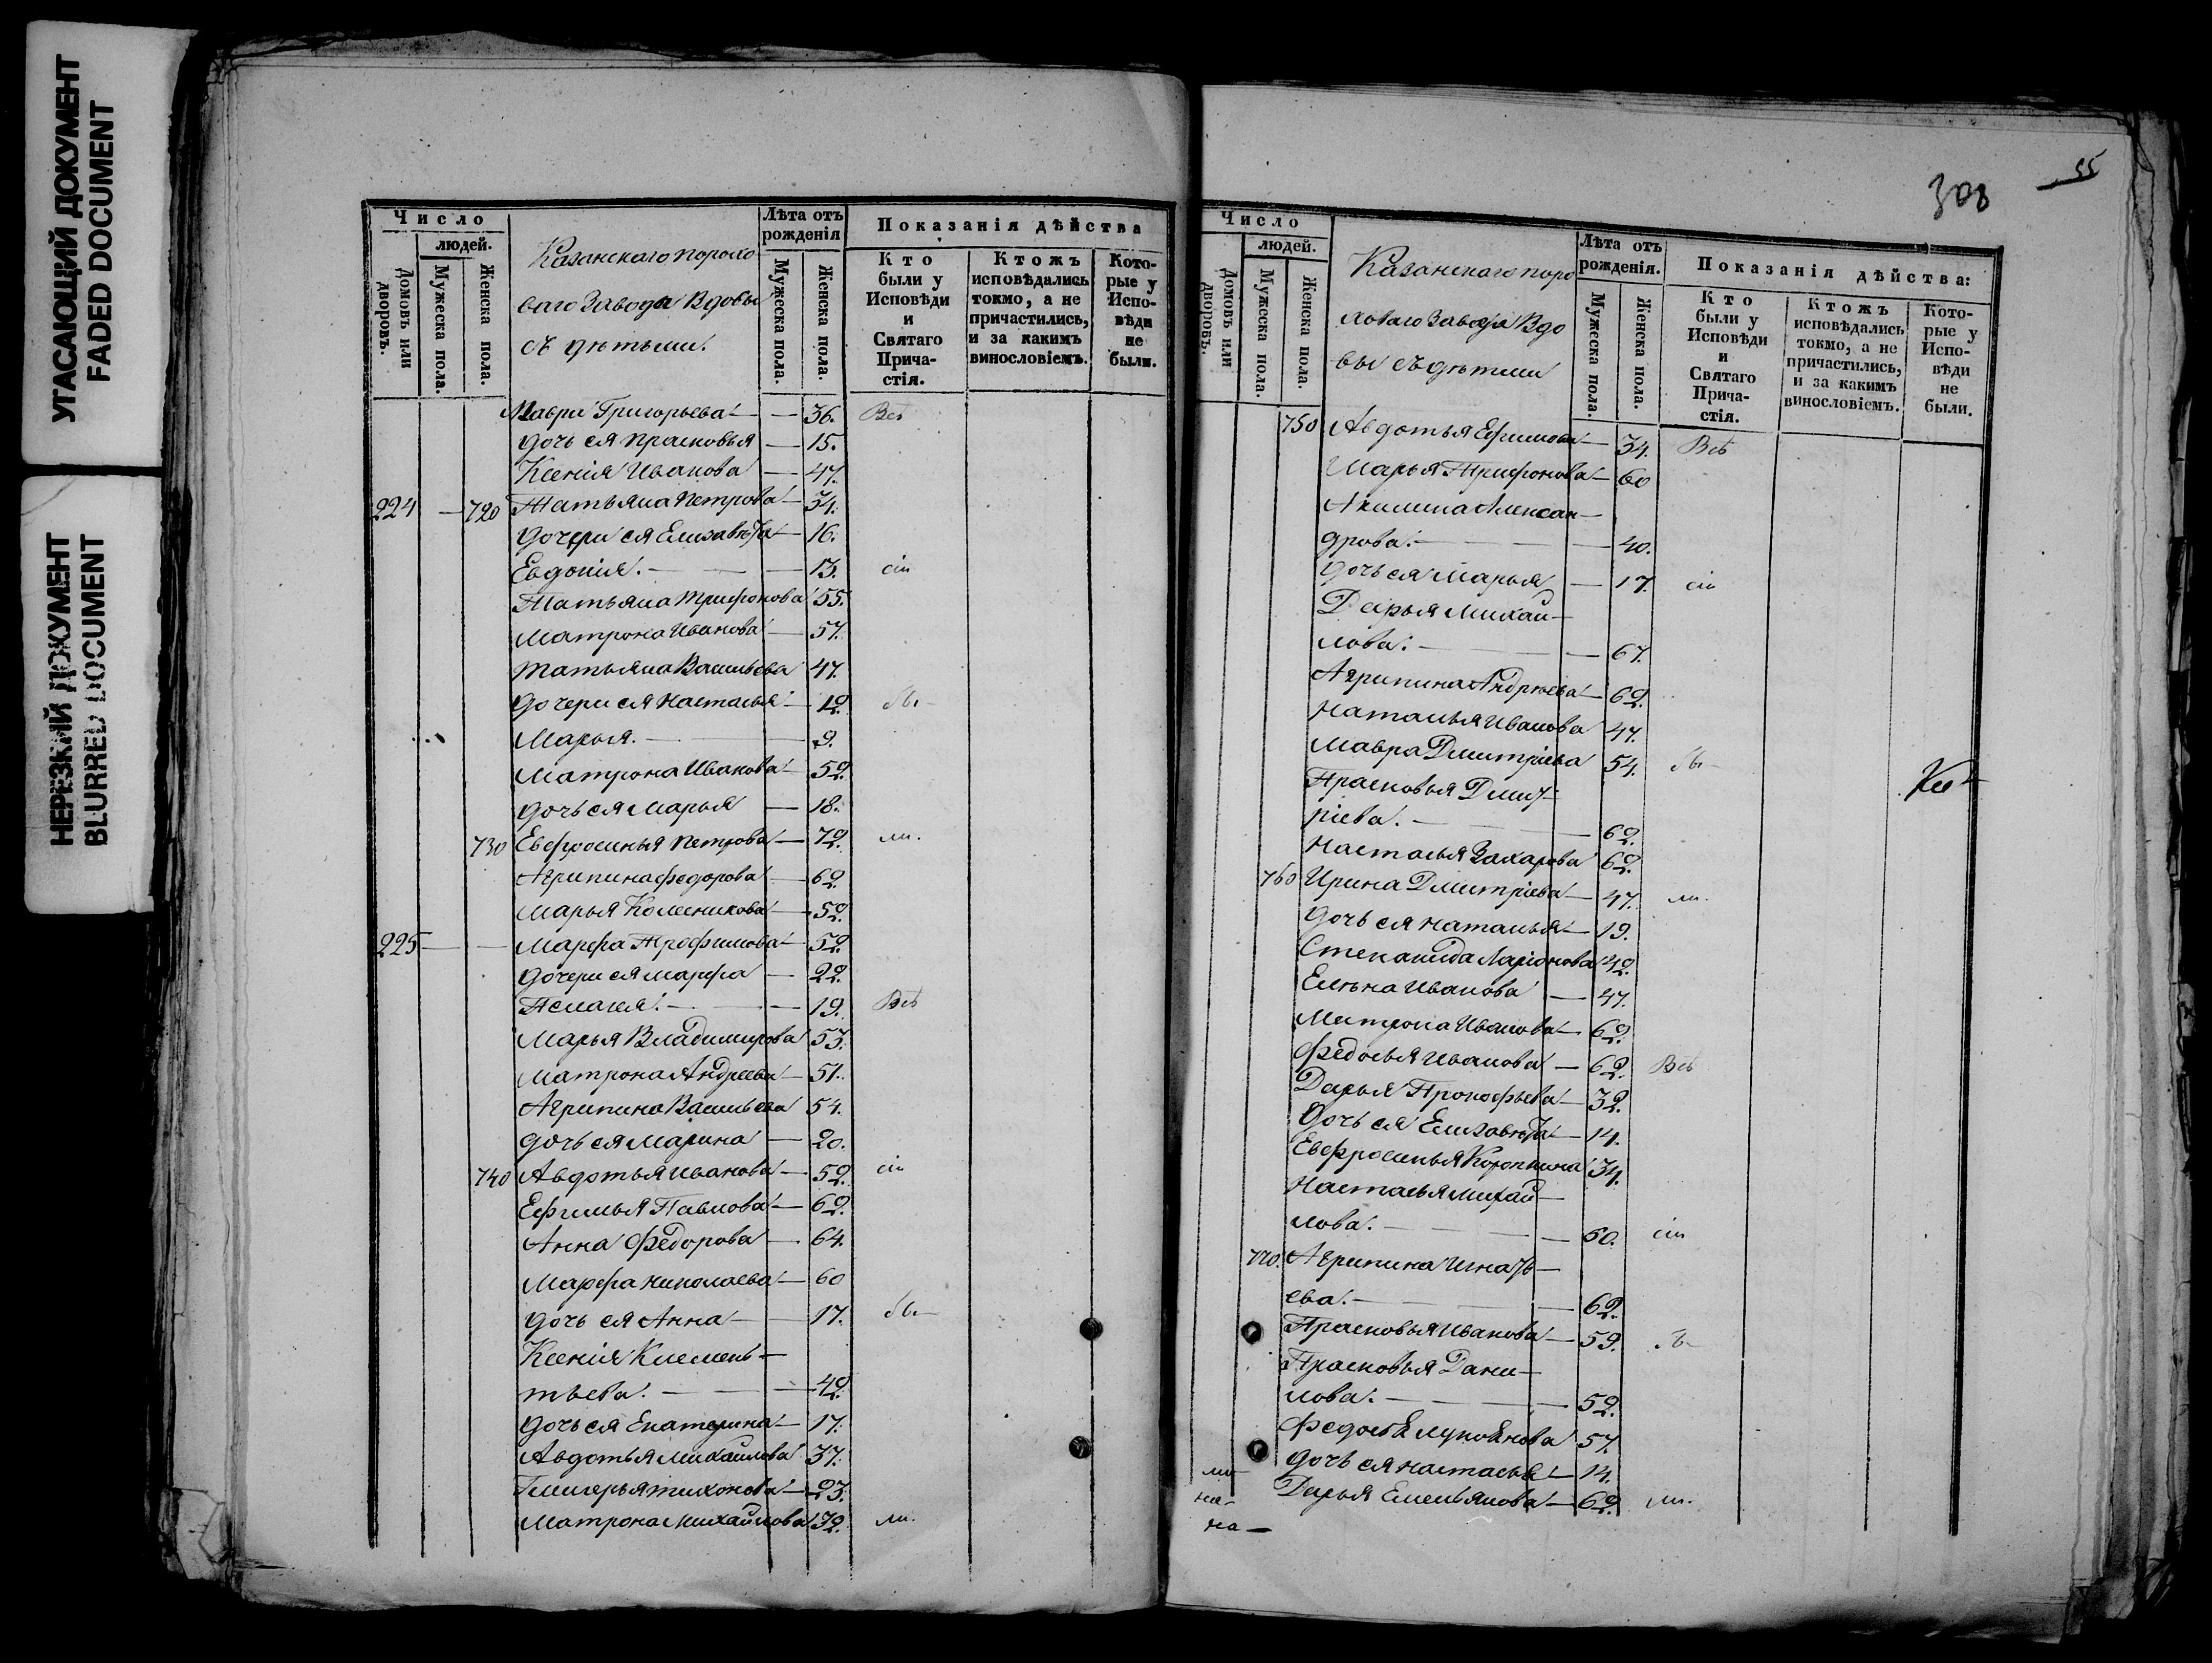 УГАСАЮЩИЙ ДОКУМЕНТ
FADED DOCUMENT
НЕРЕЗКИЙ ДОКУМЕНТ
BLURRED DOCUMENT
Число
людей.
Домовъ или дворовъ.
Мужеска пола.
Женска пола.
Казанскаго порохо
ваго Завода Вдовы
съ дѣтьми.
Лѣта отъ рожденія
Мужеска пола.
Женска пола.
Показанія дѣйства
Кто были у Исповѣди и Святаго Прича-стія.
Ктожъ исповѣдались токмо, а не причастились, и за какимъ винословіемъ.
Кото-рые у Испо-вѣди не были.
Мавра Григорьева — 36. Всѣ
дочь ея Прасковья — 15.
Ксенія Иванова — 47.
224 — 720 Татьяна Петрова — 34.
дочери ея Елизавета — 16.
Евдокія. — 13. сіи
Татьяна Трифонова 55.
Матрона Иванова — 57.
Татьяна Васильева 47.
дочери ея Настасья — 12. бы-
Марья. — 9.
Матрона Иванова — 52.
дочь ея Марья — 18.
730 Евфросинья Петрова — 72. ли.
Агрипина Федорова — 62.
Марья Колесникова — 52.
225 — — Марфа Трофимова — 52.
дочери ея Марфа — 22.
Пелагея. — 19. Всѣ
Марья Владимирова 53.
Матрона Андреева — 51.
Агрипина Васильева 54.
дочь ея Марина — 20.
740 Авдотья Иванова — 52. сіи
Ефимья Павлова — 62.
Анна Федорова — 64.
Марфа Николаева — 60
дочь ея Анна — 17. бы-
Ксенія Клемень-
тьева. — 42.
дочь ея Екатерина — 17.
Авдотья Михайлова 37.
Гликерья Тихонова — 23.
Матрона Михайлова 32. ли.
308
55
Число
людей.
Домовъ или дворовъ.
Мужеска пола.
Женска пола.
Казанскаго поро
ховаго Завода Вдо
вы съ дѣтьми
Лѣта отъ рожденія.
Мужеска пола.
Женска пола.
Показанія дѣйства:
Кто были у Исповѣди и Святаго Прича-стія.
Ктожъ исповѣдались токмо, а не причастились, и за какимъ винословіемъ.
Кото-рые у Испо-вѣди не были.
750 Авдотья Ефимова — 34. Всѣ
Марья Трифонова — 60
Акилина Алексан-
дрова. — 40.
дочь ея Марья — 17. сіи
Дарья Михай-
лова. — 67.
Агрипина Андреева — 62.
Наталья Иванова 47.
Мавра Дмитріева 54. бы-
Прасковья Дмит-
ріева. — 62.
Настасья Захарова 62.
760 Ирина Дмитріева — 47. ли.
дочь ея Наталья — 19.
Степанида Ларіонова 42.
Елена Иванова — 47.
Матрона Иванова — 62.
Федосья Иванова — 62. Всѣ
Дарья Прокофьева — 32.
дочь ея Елизавета — 14.
Евфросинья 34.
Настасья Михай-
лова. — 50. сіи
770. Агрипина Игнать-
ева. — 62.
Прасковья Иванова — 59. бы-
Прасковья Дани-
лова. — 52.
Федосья Лукоянова 57.
дочь ея Настасья — 14.
Дарья Емельянова — 62. ли.